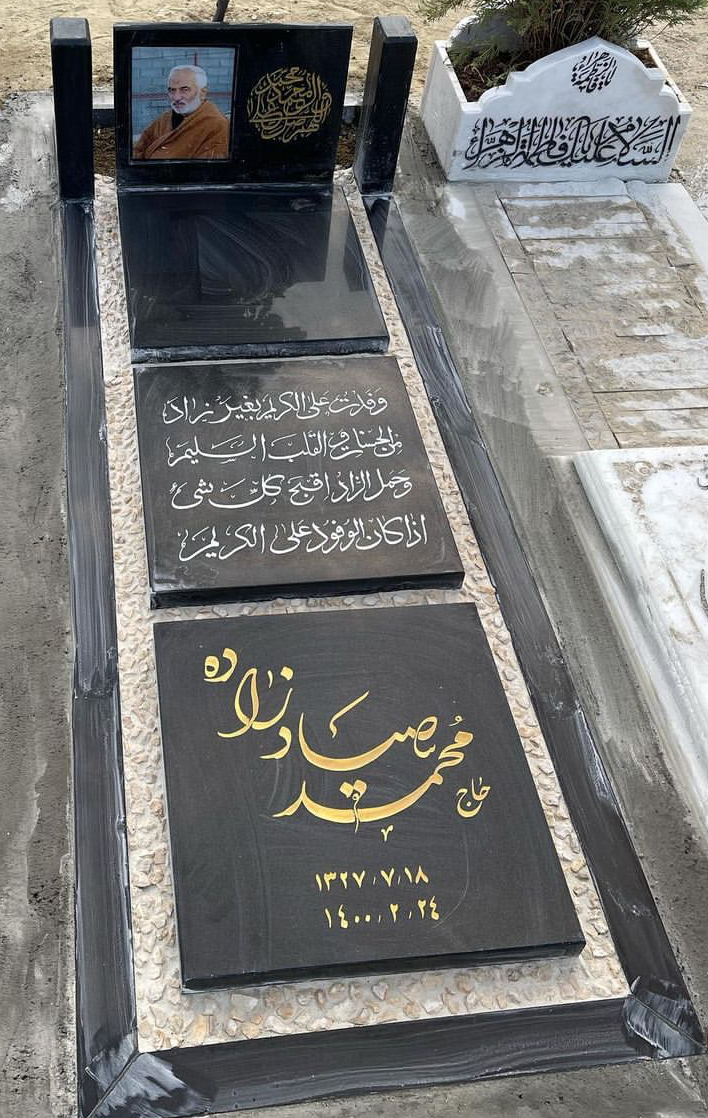 یا فاطمة الزهراء
السلام علیک یا فاطمة الزهراء
وفدت علی الکریم بغیر زاد
من الحسنات و القلب السلیم
وحمل الزاد اقبح کل شیء
اذا کان الوفود علی الکریم
حاج محمد صیاد زاده
۱۳۲۷٫۷٫۱۸
۱۴۰۰٫۲٫۲۴